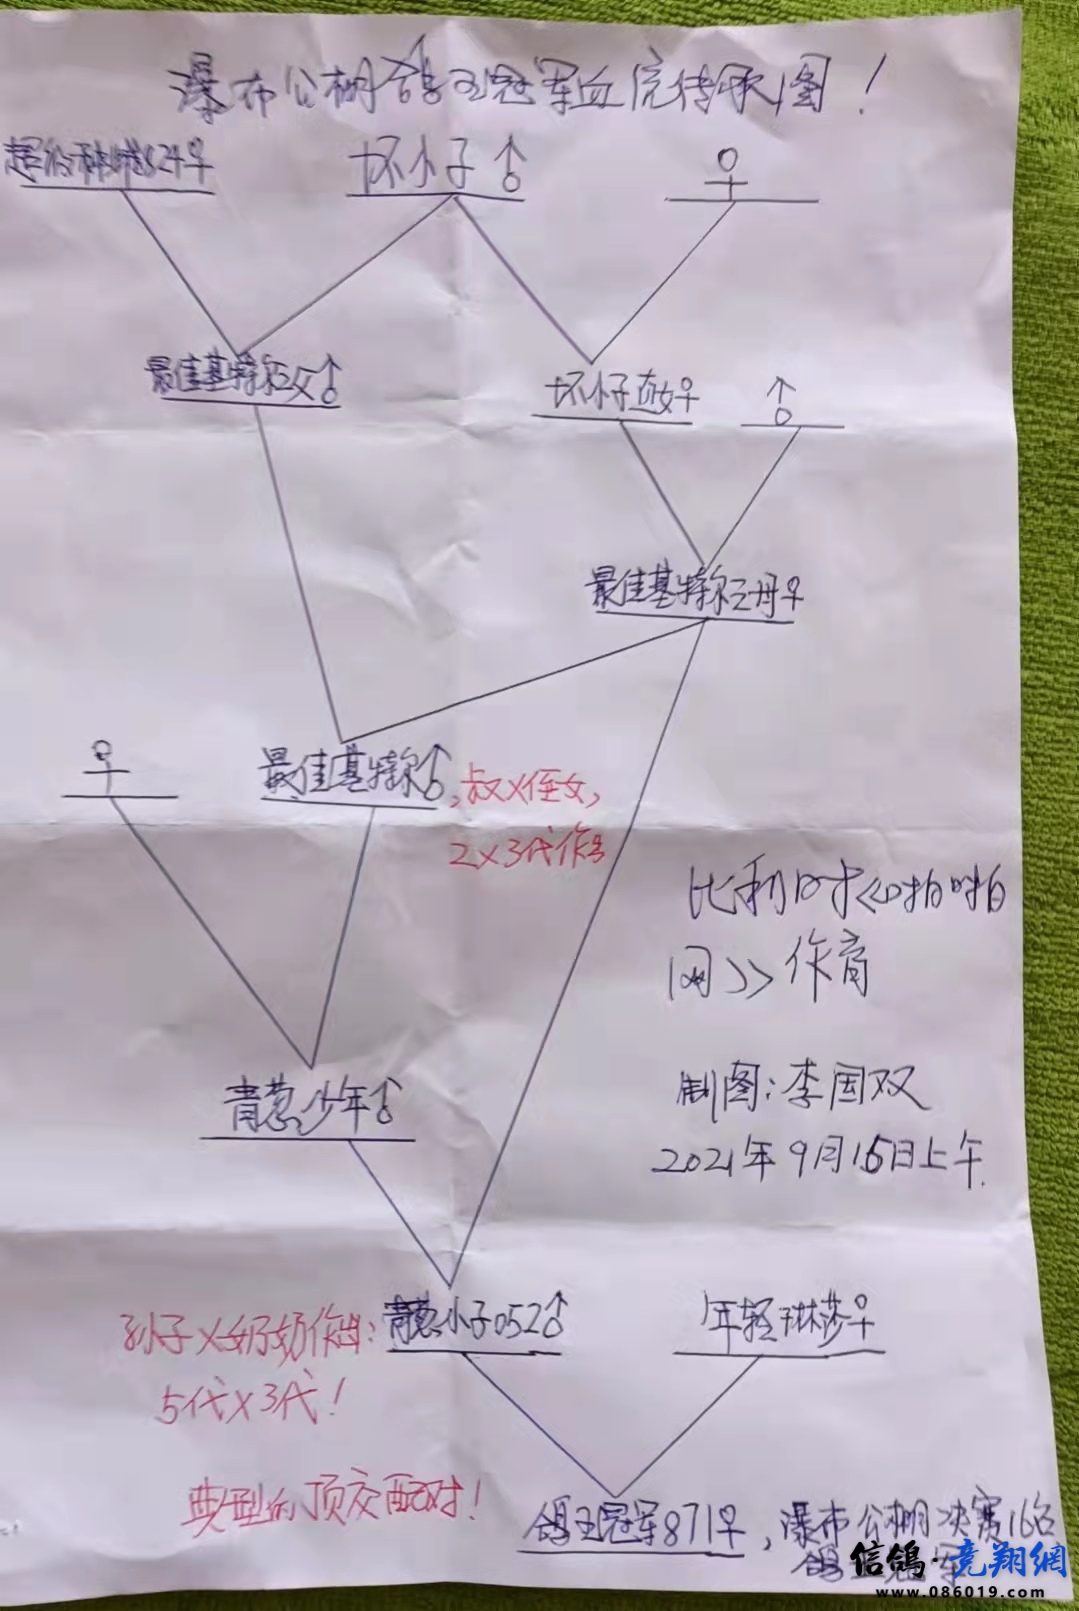 瀑布公棚鸽王冠军血统传承图！
超级种雌824♀
坏小子♂
♀
最佳基特尔之父♂
坏小子直女♀
♂
最佳基特尔之母♀
♀
最佳基特尔♂
，叔X侄女，
2X3代作出
比利时《拍拍
网》作育
青葱少年♂
制图：李国双
2021年9月15日上午
孙子X奶奶作出：
5代X3代！
青葱小子052♂
年轻琳莎♀
典型的顶交配对！
鸽王冠军871♀，瀑布公棚决赛16名
鸽王冠军
信鸽·竞翔網
www.086019.com